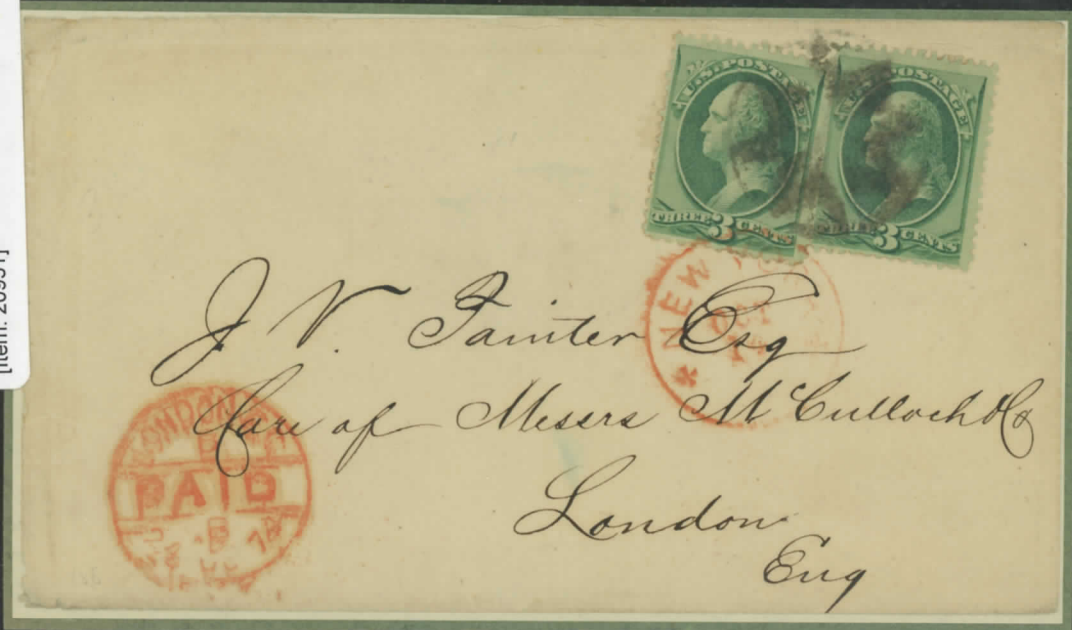 U.S. POSTAGE
THREE 3 CENTS
POSTAGE
THREE 3 CENTS
NEW
OCT
J. V. Painter Esq
Care of Messrs McCulloch & Co
London
Eng
LONDON
PAID